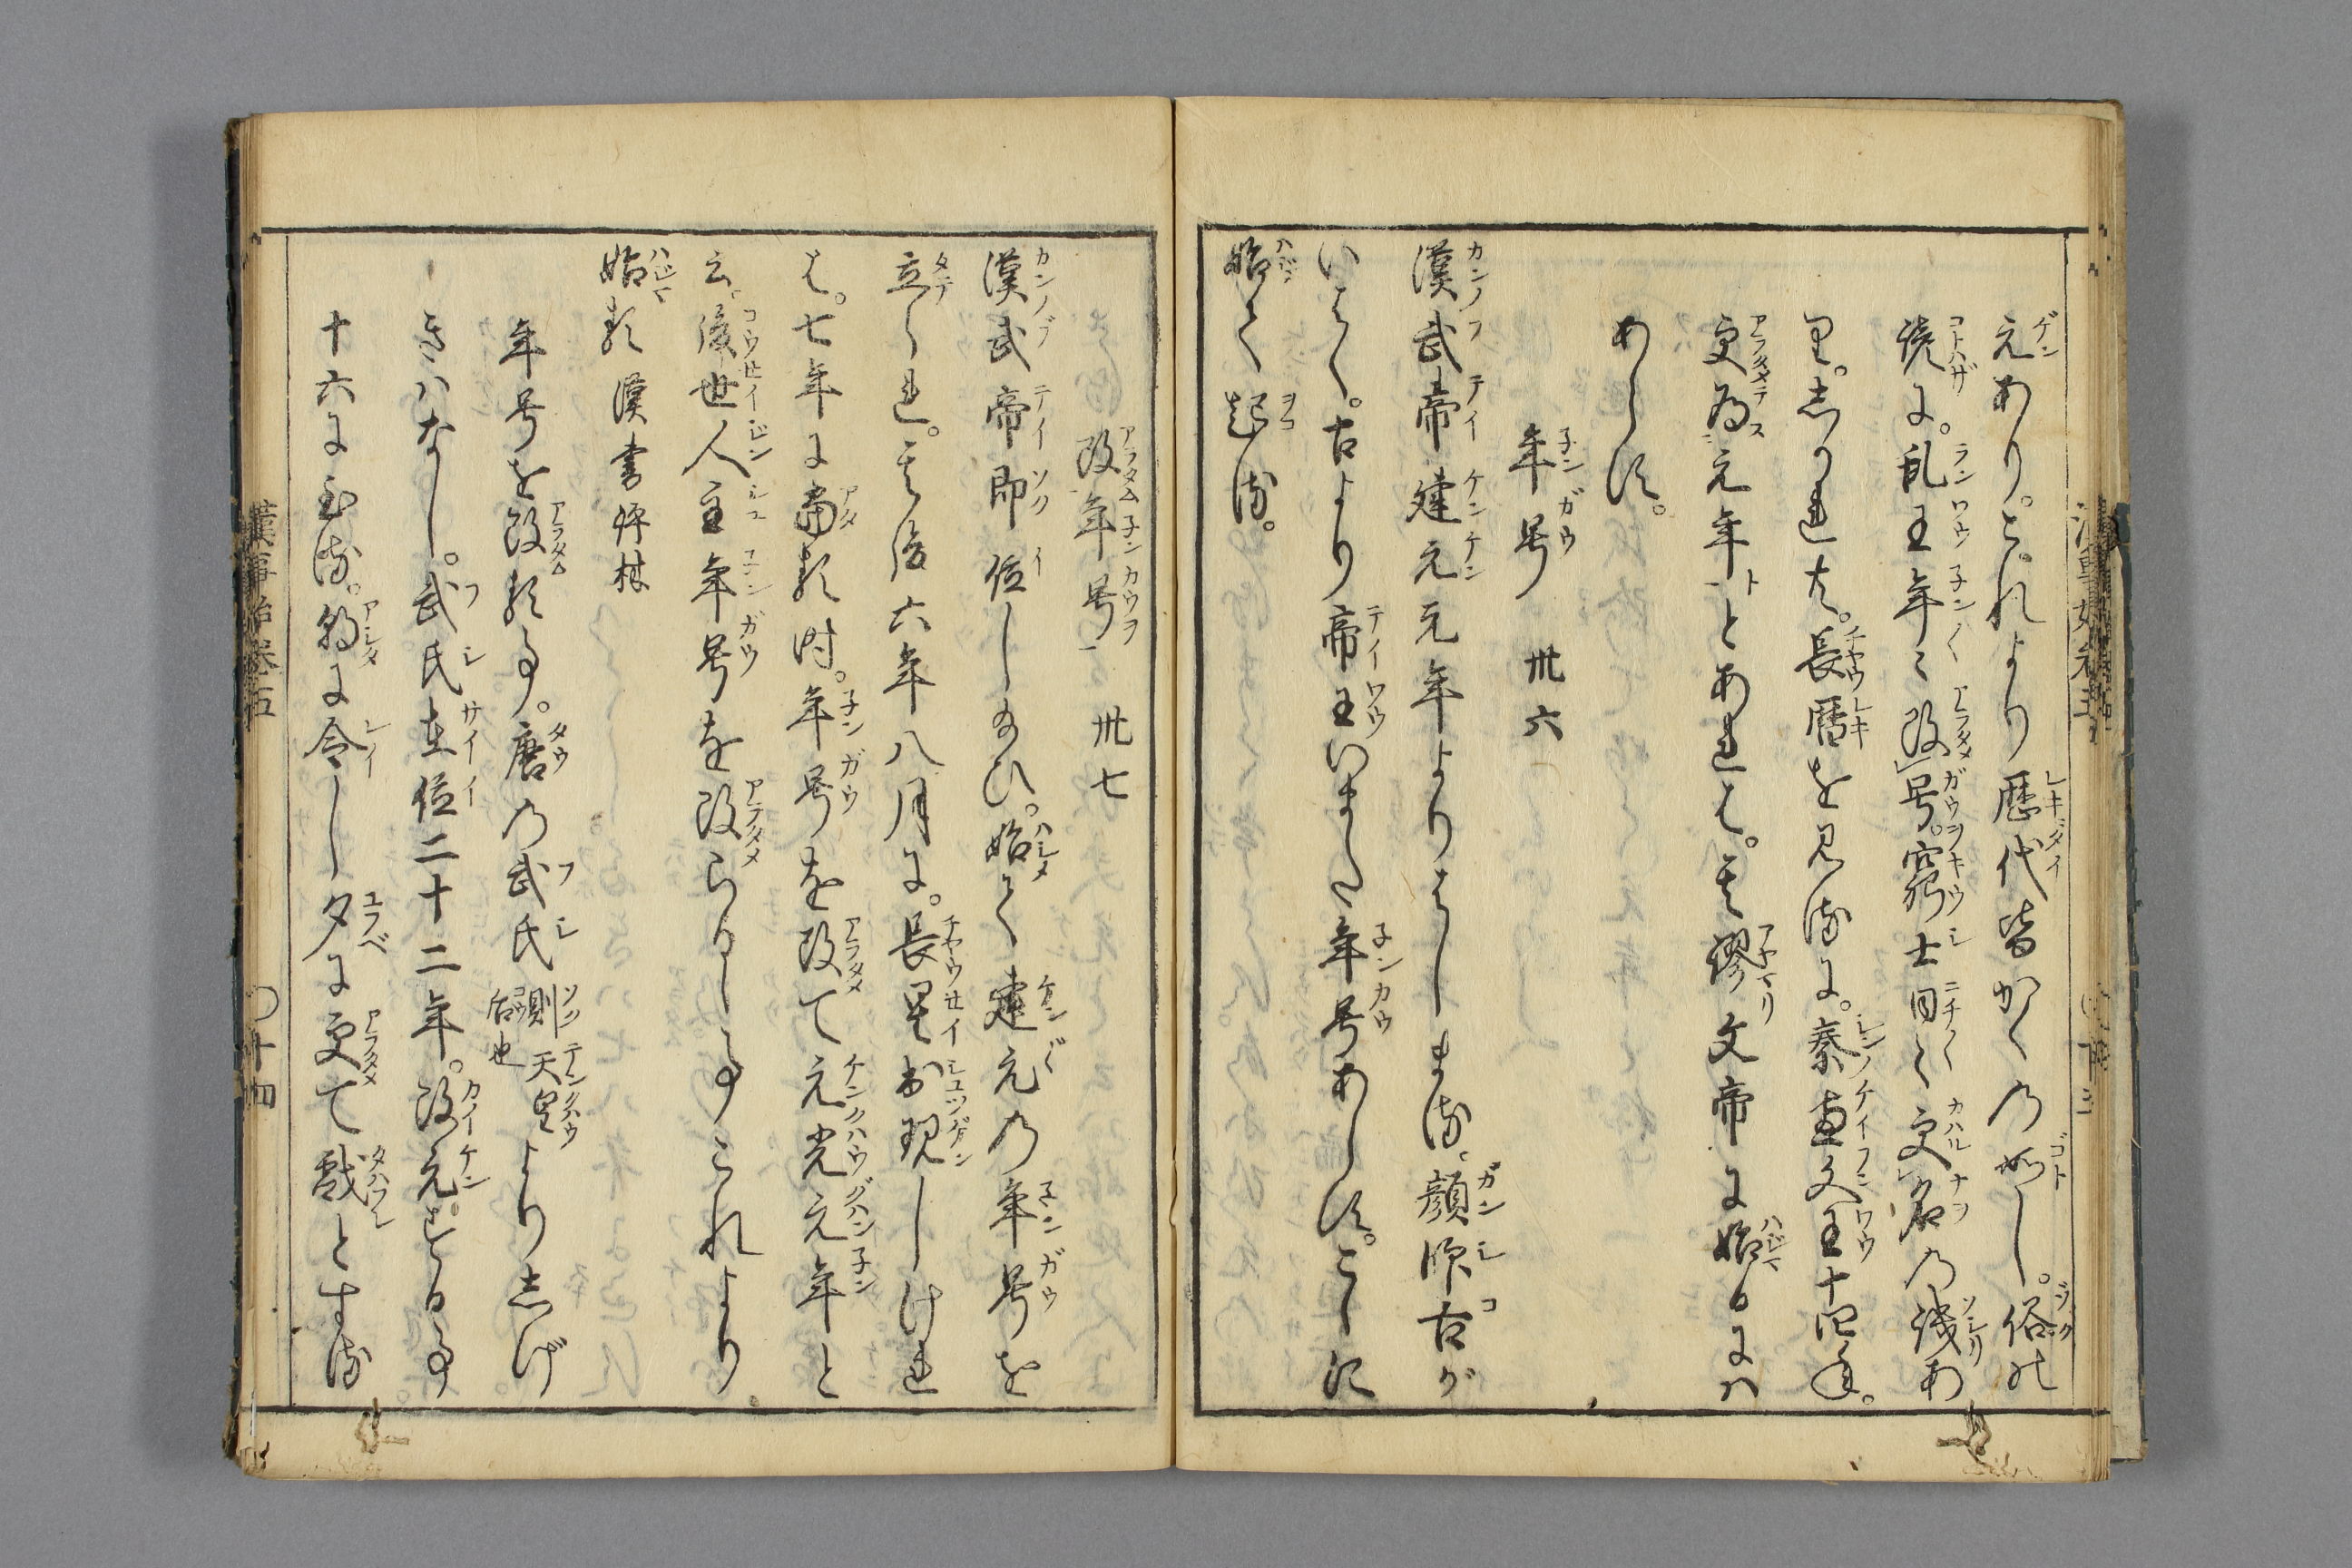 元あり。これより歴代皆かくの如し。俗の
諺に。乱王年々改号。窮士日々更名の譏あ
り。しかれ共。長暦を見るに。秦恵文王十四年。
更為元年とあれは。其謬文帝に始るには
あらず。
年号 卅六
漢武帝建元元年よりはしまる。顔師古が
いはく。古より帝王いまた年号あらず。こゝに
始て起る。
改年号 卅七
漢武帝即位し給ひ。始て建元の年号を
立らる。其後六年八月に。長星出現しけれ
は。七年に當る時。年号を改て元光元年と
云。後世人主年号を改らるゝ事これより
始る漢書評林
年号を改る事。唐の武氏則天皇后也よりしげ
きハなし。武氏在位二十二年。改元する事
十六に至る。朝に令し夕に更て戯とする
漢事始巻五
〇十四